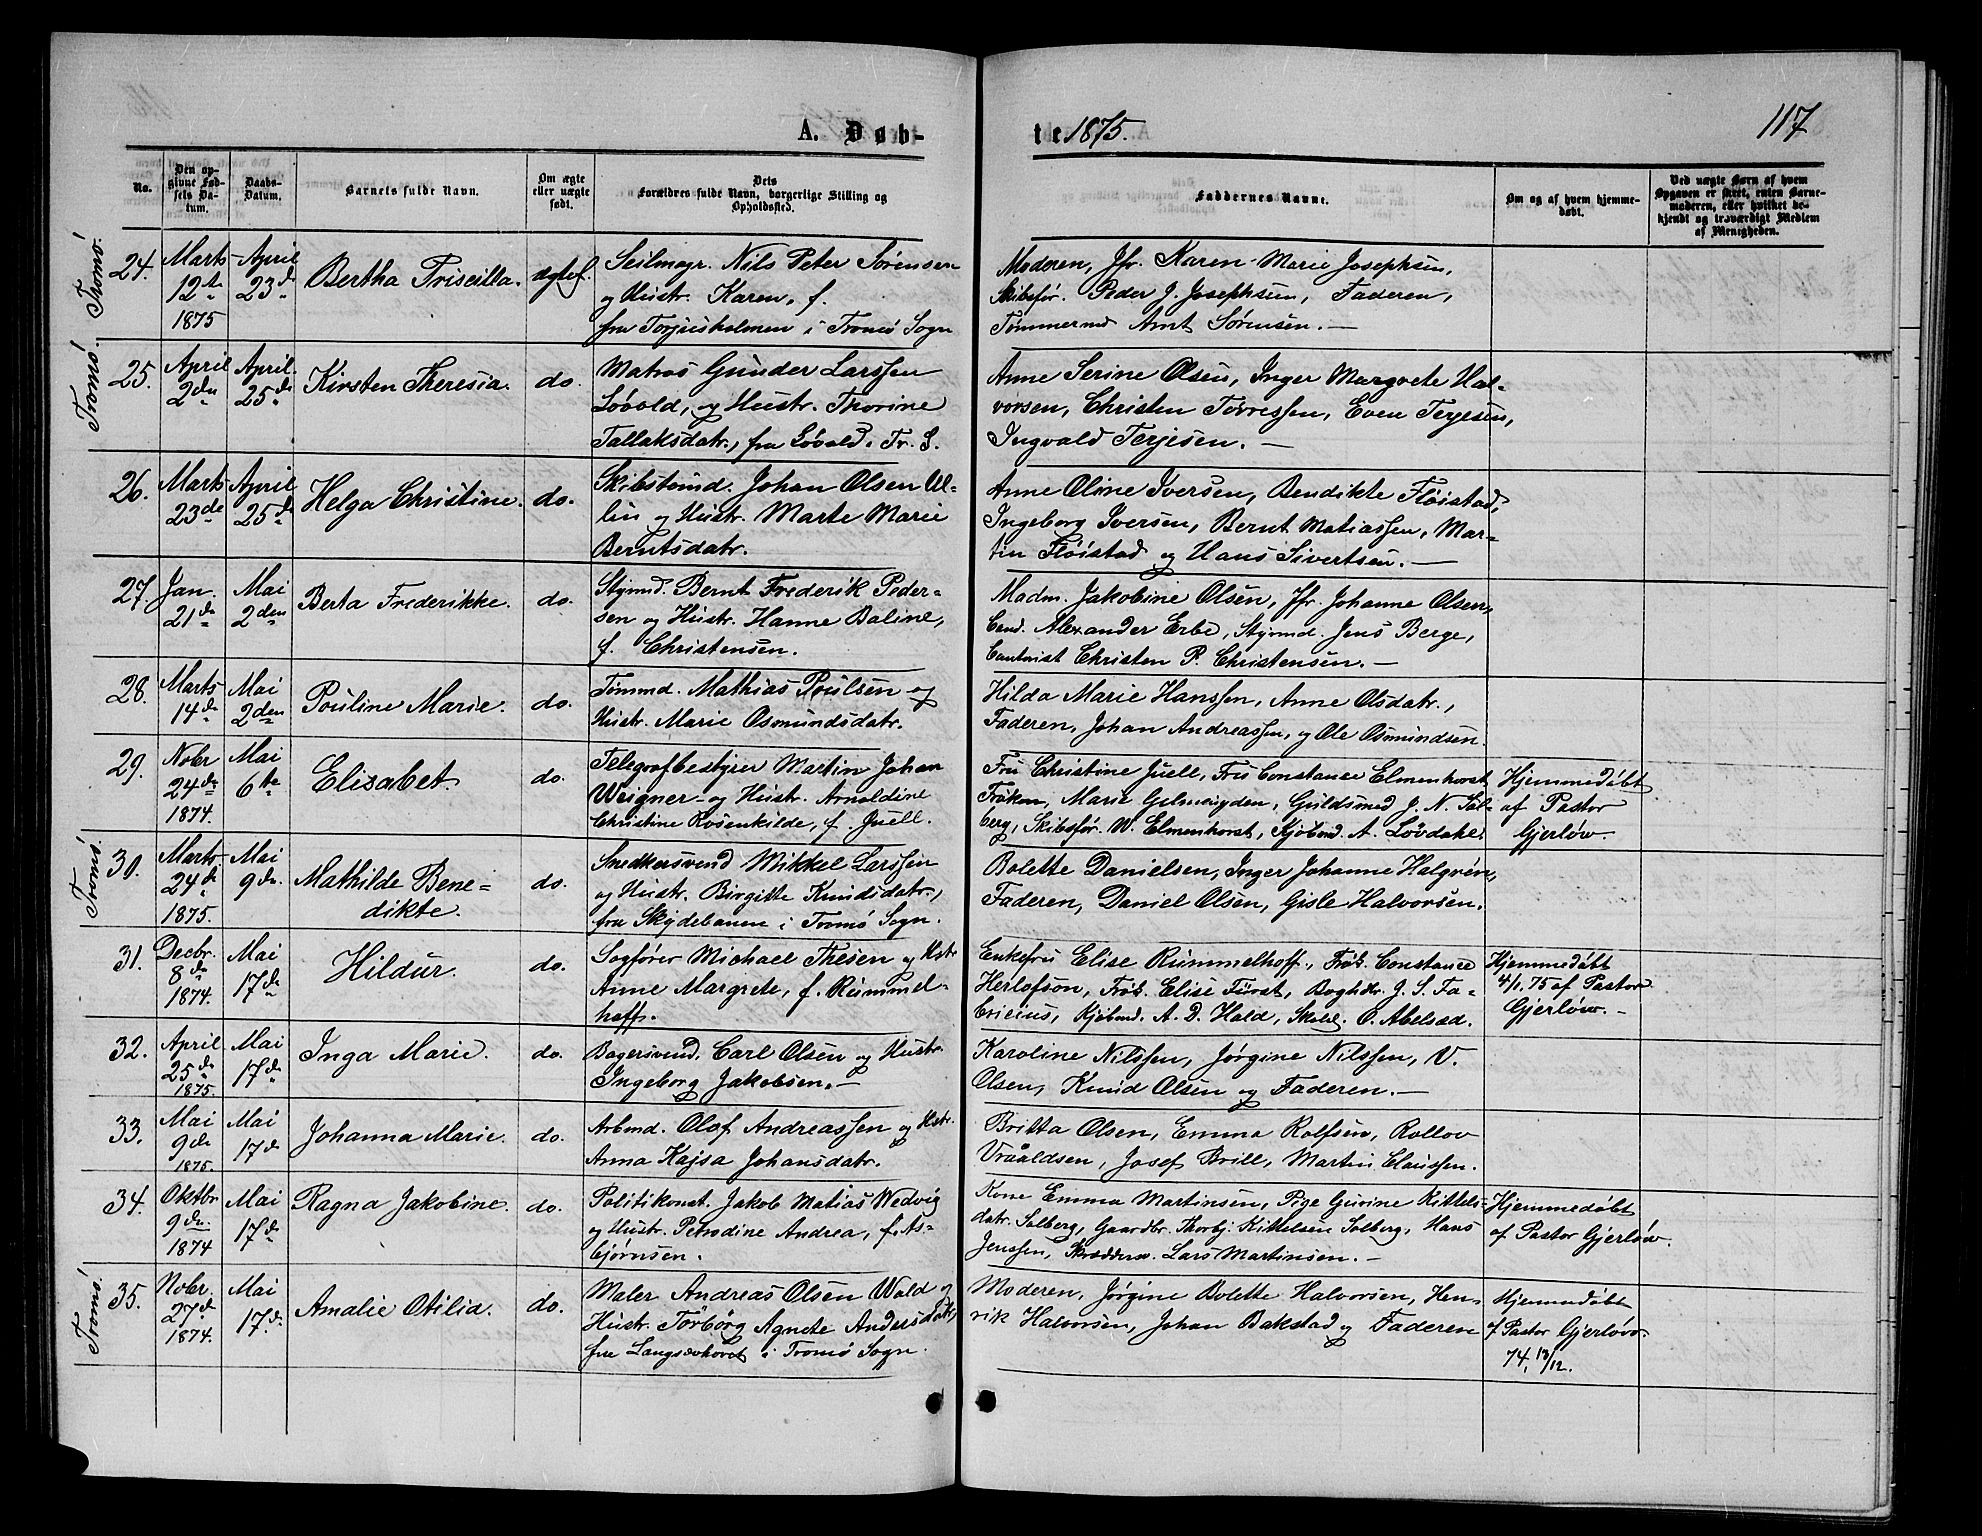 117
A. Døb-
te 1875.
No.
Den op-
givne Fød-
sels Da-
tum.
Daabs-
Datum.
Barnets fulde Navn.
Om ægte
eller uægte
født.
Dets
Forældres fulde Navn, borgerlige Stilling og
Opholdssted.
Faddernes Navne.
Om og af hvem hjemme-
døbt.
Ved uægte Børn af hvem
Opgaven er skeet, enten Barne-
moderen, eller hvilket be-
kjendt og troværdigt Medlem
af Menigheden.
Tromø.
24.
Marts
12te
1875
April
23de
Bertha Priscilla.
ægtef.
Seilmagr. Nils Peter Sørensen
og Hustr. Karen, f.
fra Torjusholmen i Tromø Sogn
Moderen, Jfr. Karen Marie Josephsen,
Skibsfør. Peder J. Josephsen, Faderen,
Tømmermd Arnt Sørensen. —
Tromø.
25.
April
2den
April.
25de
Kirsten Theresia.
do.
Matros Gunder Larssen
Løvold, og Hustr. Thorine
Tallaksdatr., fra Løvold i Tr. S.
Anne Serine Olsen, Inger Margrete Hal-
vorsen, Christen Torressen, Even Terjesen,
Ingvald Terjesen. —
26.
Marts
23de
April
25de
Helga Christine.
do.
Skibstømd. Johan Olsen Ul-
lin og Hustr. Marte Marie
Berntsdatr.
Anne Oline Iversen, Bendikte Fløistad,
Ingeborg Iversen, Bernt Matiassen, Mar-
tin Fløistad og Hans Sivertsen. —
27.
Jan.
21de
Mai
2den
Berta Frederikke.
do.
Stymd. Bernt Frederik Peder-
sen og Hustr. Hanne Boline,
f. Christensen.
Madm. Jakobine Olsen, Jfr. Johanne Olsen,
Cand. Alexander Erbe, Styrmd. Jens Berge,
Contorist Christen P. Christensen. —
28.
Marts
14de
Mai
2den
Pouline Marie.
do.
Tømmd. Mathias Poulsen og
Hustr. Marie Osmundsdatr.
Hilda Marie Hanssen, Anne Olsdatr.,
Faderen, Johan Andreassen, og Ole Osmundsen.
29.
Nobr
24de
1874.
Mai
6te
Elisabet.
do.
Telegrafbestyrer Martin Johan
Weigner og Hustr. Arnoldine
Christine Rosenkilde, f. Juell.
Fru Christine Juell, Fru Constance Elmenhorst
Frøken, Marie Gelmuyden, Guldsmed J. N. Sol-
berg, Skibsfør. W. Elmenhorst, Kjøbmd. A. Løvdahl.
Hjemmedøbt
af Pastor
Gjerløw.
Tromø.
30.
Marts
24de
1875.
Mai
9de.
Mathilde Bene-
dikte.
do.
Snedkersvend Mikkel Larssen
og Hustr. Birgitte Knudsdatr.,
fra Skydebanen i Tromø Sogn.
Bolette Danielsen, Inger Johanne Halgren,
Faderen, Daniel Olsen, Gisle Halvorsen.
31.
Decbr.
8de
1874.
Mai
17de
Hildur.
do.
Sagfører Michael Thesen og Hstr
Anne Margrete, f. Rummel-
hoff.
Enkefru Elise Rummelhoff, Frøk. Constance
Herlofson, Frøk. Elise Fürst, Boghdlr. J. S. Fa-
bricius, Kjøbmd. A. D. Hald, Skolel. O. Abelsæd.
Hjemmedøbt
4/1.75 af Pastor
Gjerløw. -
32.
April
25de
1875.
Mai
17de
Inga Marie.
do.
Bagersvend. Carl Olsen og Hustr.
Ingeborg Jakobsen. —
Karoline Nilssen, Jørgine Nilssen, V.
Olsen, Knud Olsen og Faderen. —
33.
Mai
9de
1875.
Mai
17de
Johanna Marie.
do.
Arbmd. Olof Andreassen og Hstr.
Anna Kajsa Johansdatr.
Britta Olsen, Emma Rolfsen, Rollov
Vraaldsen, Josef Brill, Martin Claussen.
34.
Oktbr
9de.
1874
Mai
17de
Ragna Jakobine.
do.
Politikonst. Jakob Matias Wedvig
og Hustr. Petrodine Andrea, f. As-
bjørnsen.
Kone Emma Martinsen, Pige Gurine Kittels-
datr. Solberg, Gaardbr. Thorbj. Kittelsen Solberg, Hans
Jenssen, Skræddersv. Lars Martinsen. —
Hjemmedøbt
af Pastor Gjerløw.
Tromø.
35.
Nobr.
27de
1874.
Mai
17de.
Amalie Otilia.
do.
Maler Andreas Olsen Wold og
Hustr. Torborg Agnete Andersdatr,
fra Langsævhovet i Tromø Sogn.
Moderen, Jørgine Bolette Halvorsen, Hen-
rik Halvorsen, Johan Bakstad og Faderen
Hjemmedøbt
af Pastor Gjerløw
74, 13/12.